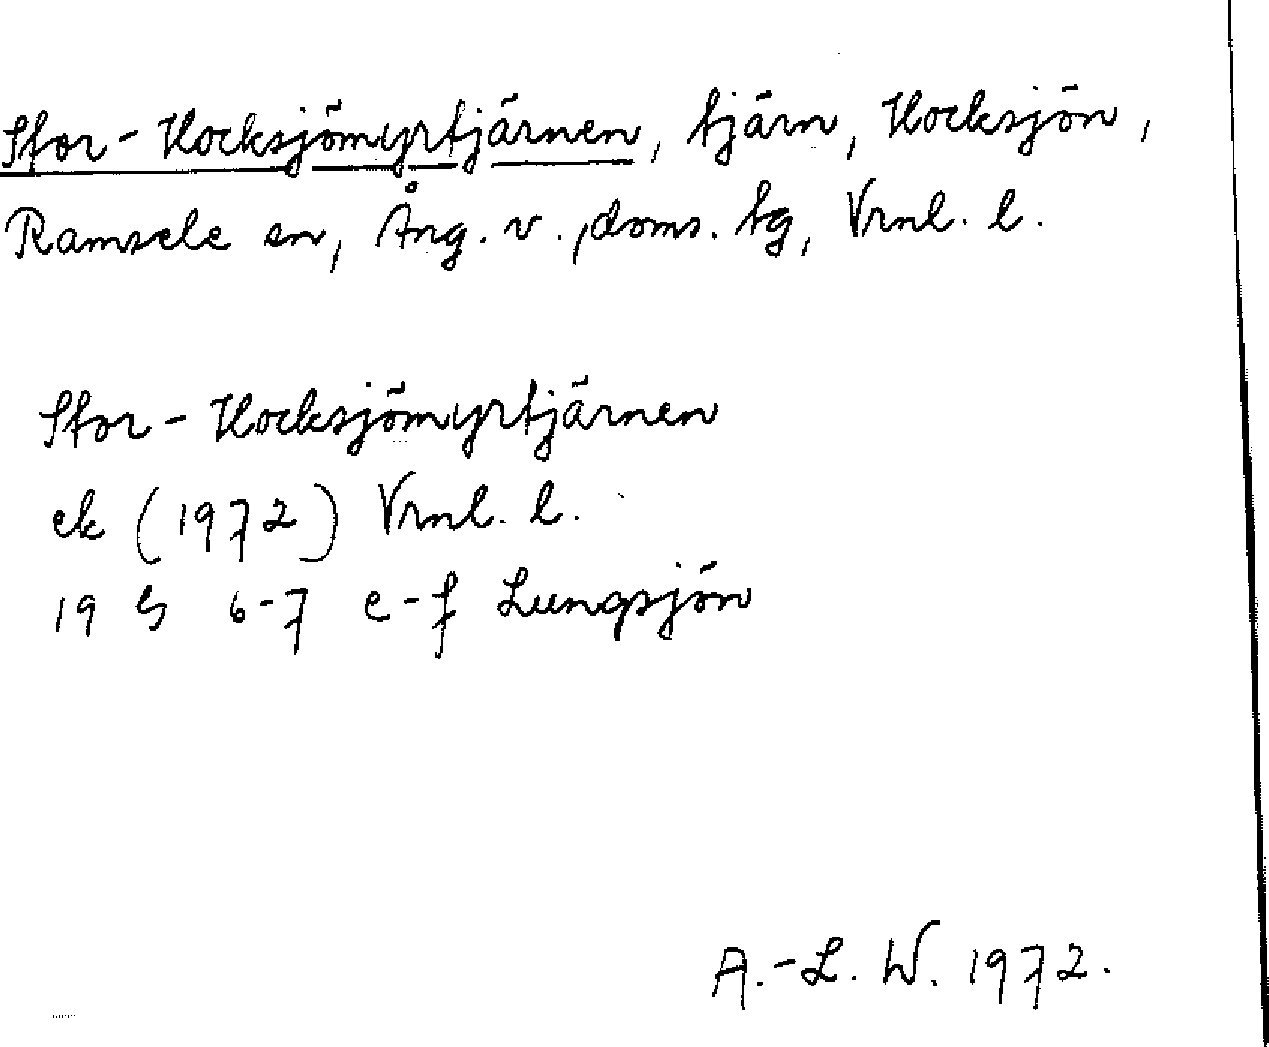 Stor-Hocksjömyrtjärnen, tjärn, Hocksjön,
Ramsele sn, Ång. v., doms. tg, Vrnl. l.
Stor-Hocksjömyrtjärnen
ek (1972) Vrnl. l.
19 G 6-7 e-f Lungsjön
A.-L. W. 1972.